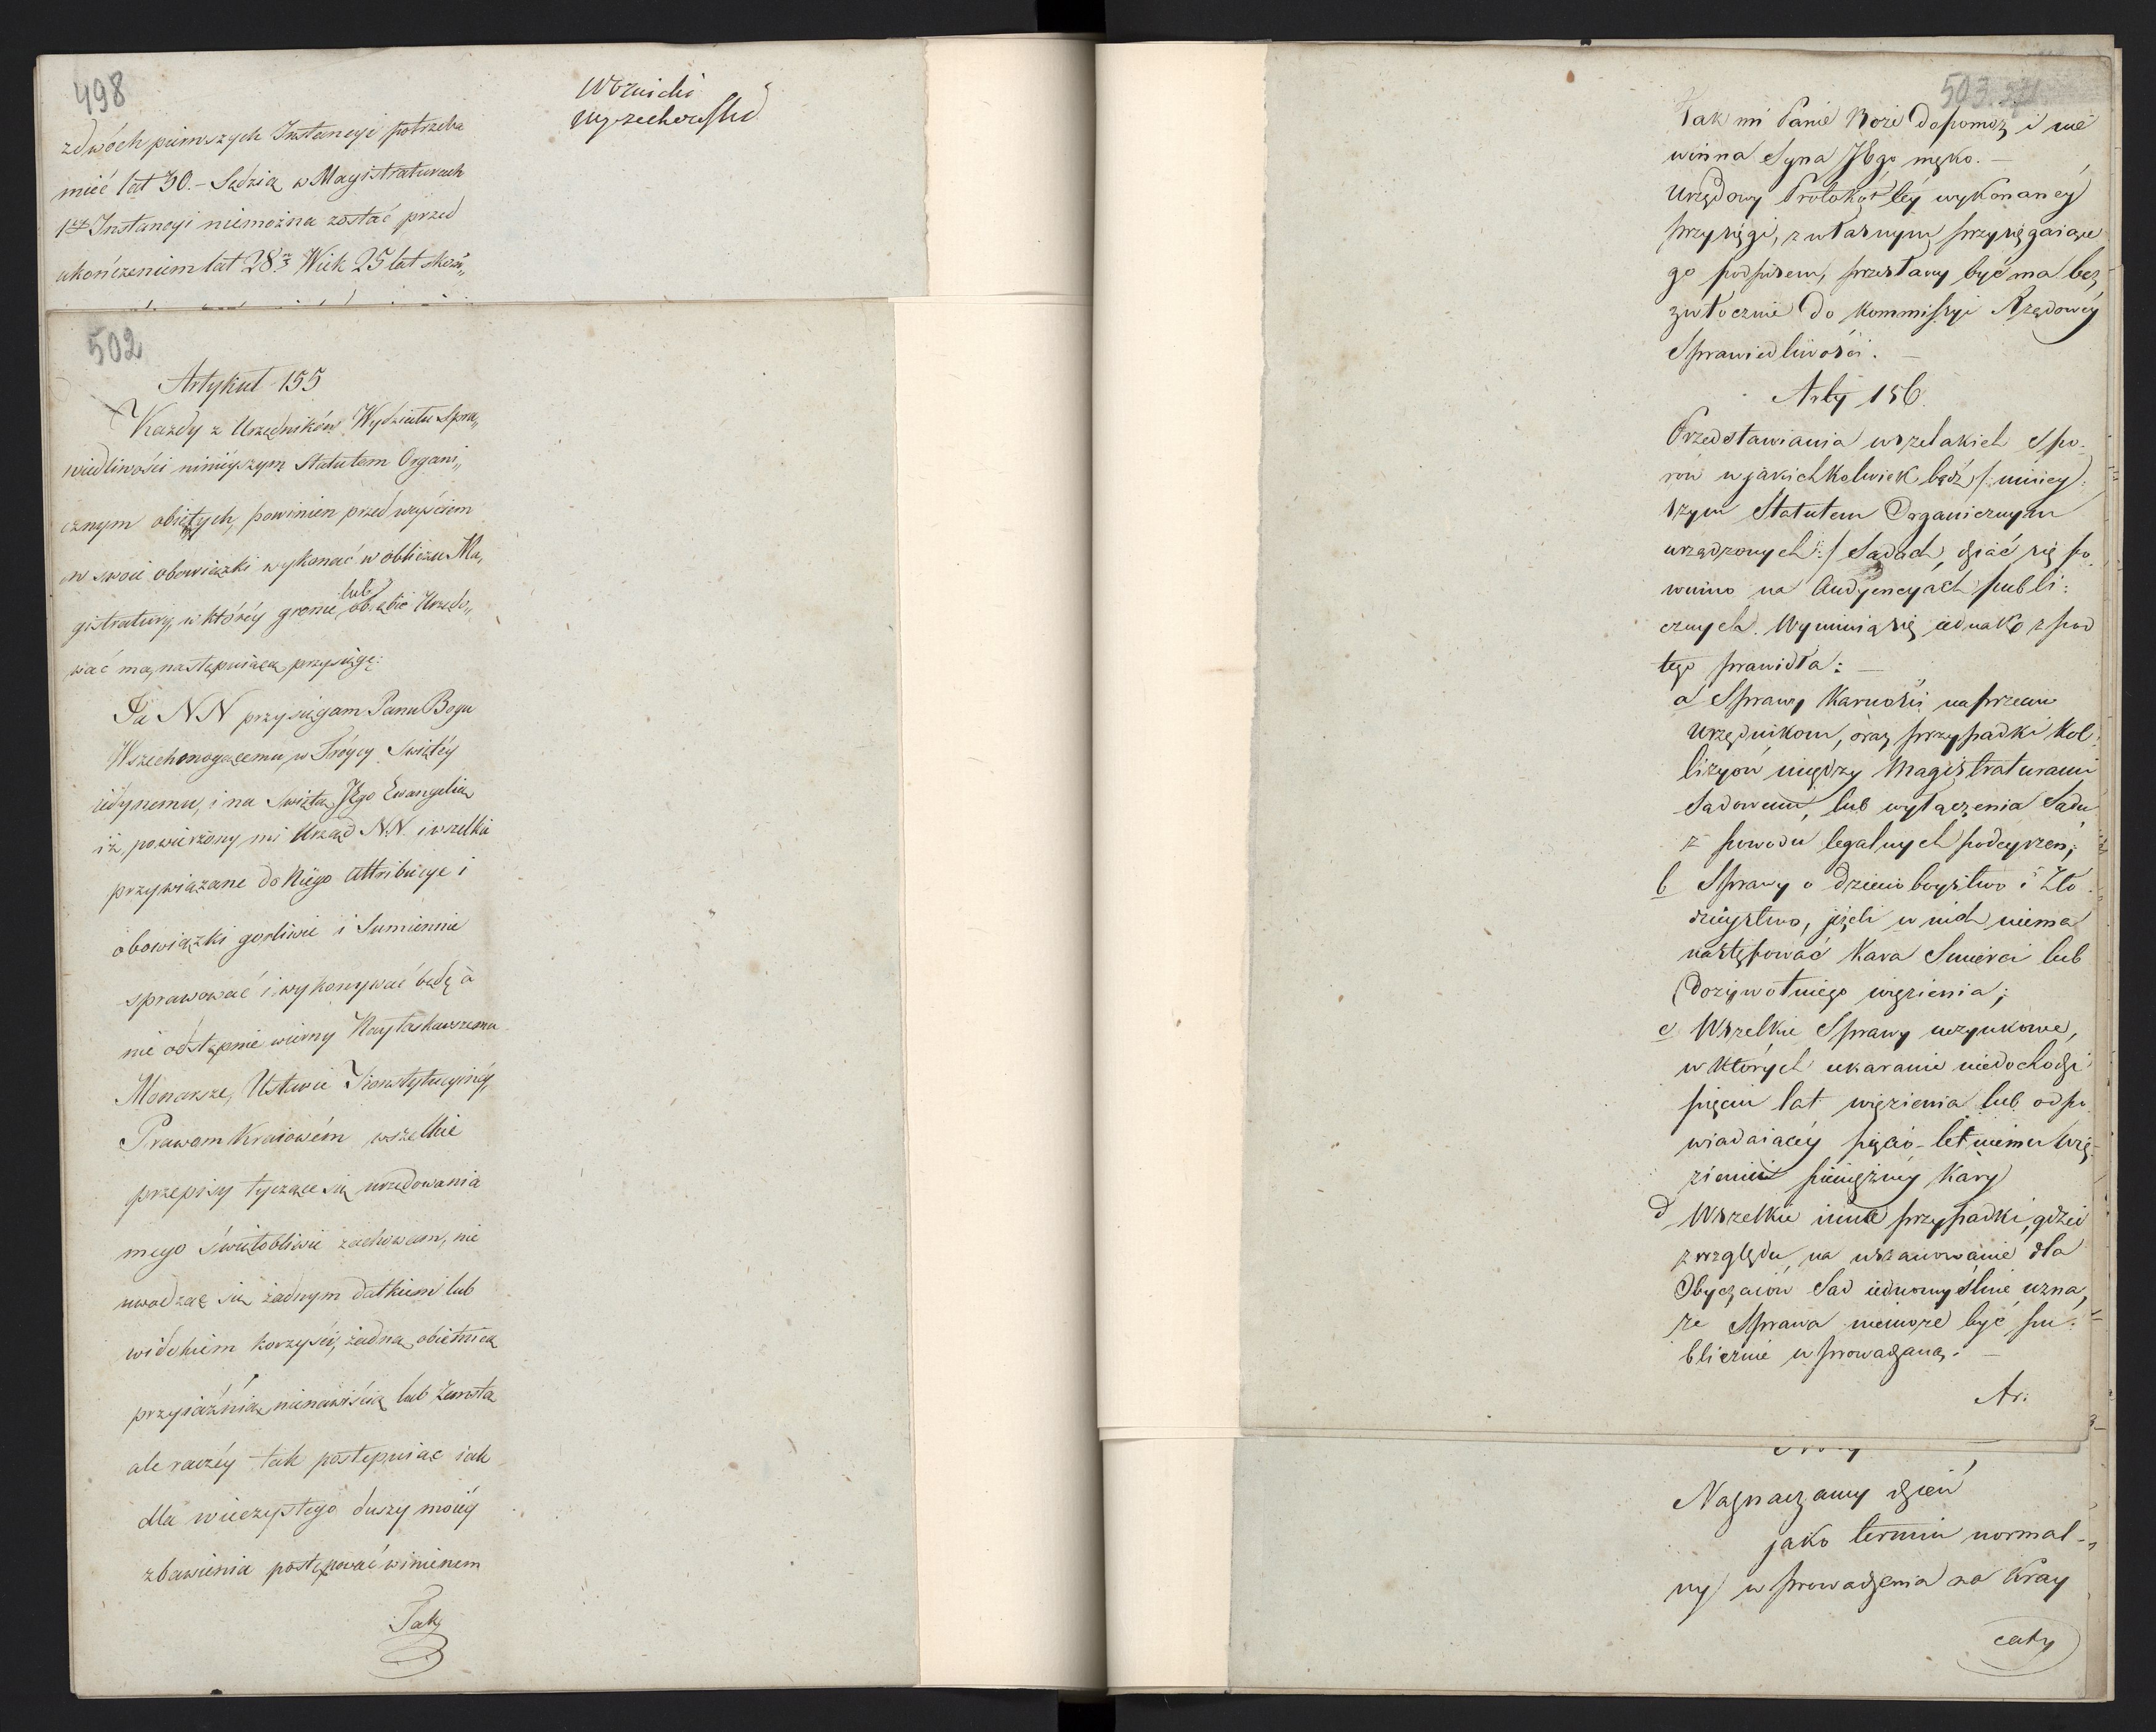 498
Woźnicki
Wyczechowski
z dwóch pierwszych Instancyi potrzeba
mieć lat 30. – Sędzią w Magistraturach
1ey Instancyi niemożna zostać przed
ukończeniem lat 28. Wiek 25 lat skoń„
502
Artykuł 155
Każdy z Urzędników Wydziału Spra„
wiedliwości ninieyszym Statutem Organi„
cznym obiętych, powinien przed weyściem
w swoie obowiązki wykonać w obliczu Ma„
gistratury, w któréy gronie lub obrębie Urzędo„
wać ma, następuiącą przysięgę:
Ja NN przysięgam Panu Bogu
Wszechmogącemu, w Tróycy Swiętéy
iedynemu, i na Swiętą Jego Ewangelią
iż, powierzony mi Urząd N.N. i wszelkie
przywiązane do Niego Attribucye i
obowiązki gorliwie i Sumiennie
sprawować i wykonywać będę a
nie odstępnie wierny Nayłaskawszemu
Monarsze, Ustawie Konstytucyinéy,
Prawom Kraiowém wszelkie
przepisy tyczące się urzędowania
mego świętobliwie zachowam, nie
uwodząc się żadnym datkiem lub
widokiem korzyści, żadną obietnicą
przyiaźnią, nienawiścią lub Zemstą
ale raczéy tak postępuiąc iak
dla wieczystego duszy moiéy
zbawienia postępować winienem
Tak
503.
Tak mi Panie Boże Dopomoż i nie
winna Syna Jego męko. –
Urzędowy Protokół téy wykonanéy
przysięgi, z własnym przysięgaiące
go podpisem, przesłany być ma bez
zwłocznie do Kommissyi Rządowéy
Sprawiedliwości. –
Arty 156.
Przedstawiania wszelakich Spo-
rów w jakichkolwiek bądź /: niniey:
szym Statutem Organicznym
urządzonych :/ Sądach, dziać się po
winno na Audyencyach publi:
cznych. Wymuią się iednako z pod
tego prawidła: –
a Sprawy Karności naprzeciw
Urzędnikom, oraz przypadki Kol:
lizyów między Magistraturami
Sądowemi, lub wyłączenia Sądu
z powodu legalnych podeyrzeń;
b Sprawy o dziecioboystwo i Zło
dzieystwo, jeżeli w nich niema
następować Kara Smierci lub
Dożywotniego więzienia;
c Wszelkie Sprawy uczynkowe,
w których ukaranie niedochodzi
pięciu lat więzienia lub odpo
wiadaiącéy pięcio-letniemu Wię-
zieniu pieniężnéy Kary
d Wszelkie inne przypadki, gdzie
z względu na uszanowanie dla
Obyczaiów Sąd iednomyślnie uzna,
że Sprawa niemoże być pu:
blicznie wprowadzaną. –
Ar.
Naznaczamy dzień
jako termin normal-
ny wprowadzenia na Kray
cały